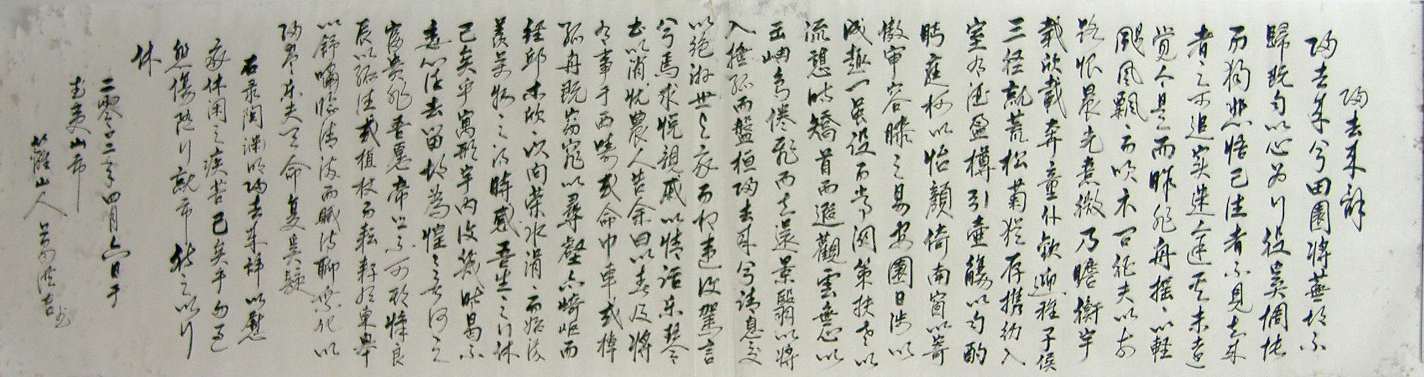 歸去來辭
歸去來兮田園將蕪胡不
歸既自以心為行役奚惆悵
而獨悲悟已往者不見知來
者之可追實迷途其未遠
覺今是而昨非舟搖搖以輕
颺風飄飄而吹衣問征夫以前
路恨晨光熹微乃瞻衡宇
載欣載奔童仆歡迎稚子侯
三徑就荒松菊猶存攜幼入
室有酒盈樽引壺觴以自酌
眄庭柯以怡顏倚南窗以寄
傲審容膝之易安園日涉以
成趣門雖設而常關策扶老以
流憩時矯首而遐觀雲無心以
出岫鳥倦飛而知還景翳翳以將
入撫孤而盤桓歸去來兮請息交
以絕游世與我而相違復駕言
兮焉求悅親戚以情話樂琴
書以消憂農人告余曰以春及將
有事于西疇或命巾車或棹
孤舟既窈窕以尋壑亦崎嶇而
經邱木欣欣以向榮水涓涓而始流
羨萬物之得時感吾生之行休
已矣乎寓形宇內復幾時曷不
委心任去留胡為惶惶其何之
富貴非吾願帝鄉不可期懷良
辰以孤往或植杖而耘耔登東皋
以舒嘯臨清流而賦詩聊乘化以
歸尽樂夫天命復奚疑
右录陶淵明歸去來辭以慰
家休閑之淡苦已矣乎
休
二零一二年四月六日于
羅山人